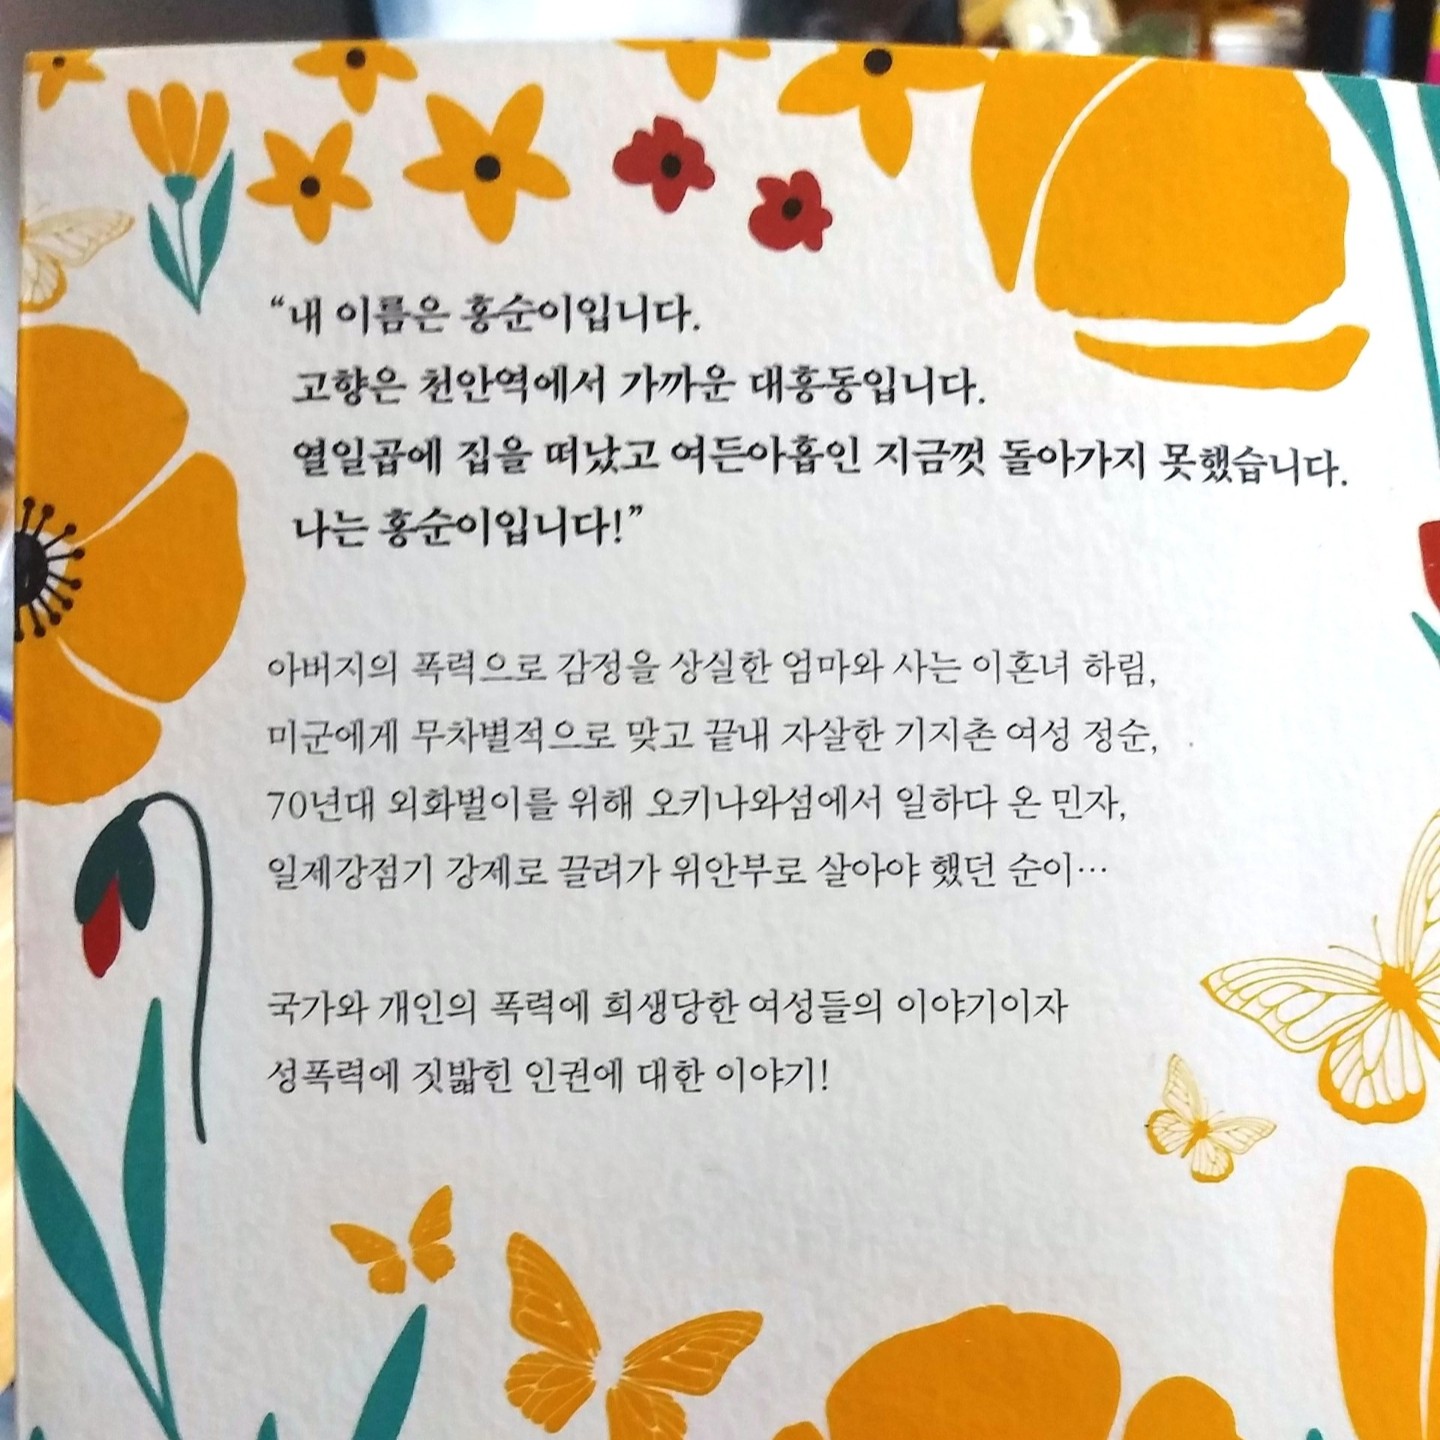 “내 이름은 홍순이입니다.
고향은 천안역에서 가까운 대흥동입니다.
열일곱에 집을 떠났고 여든아홉인 지금껏 돌아가지 못했습니다.
나는 홍순이입니다!”
아버지의 폭력으로 감정을 상실한 엄마와 사는 이혼녀 하림,
미군에게 무차별적으로 맞고 끝내 자살한 기지촌 여성 정순,
70년대 외화벌이를 위해 오키나와섬에서 일하다 온 민자,
일제강점기 강제로 끌려가 위안부로 살아야 했던 순이…
국가와 개인의 폭력에 희생당한 여성들의 이야기이자
성폭력에 짓밟힌 인권에 대한 이야기!